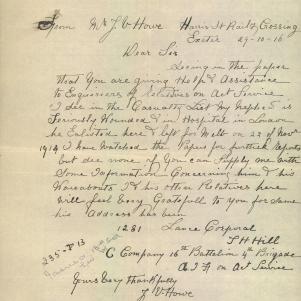 From Mr J V Howe Harris St Railway Crossing
Exeter 29-10-16
Dear Sir
Seeing in the papers
that you are giving help & Assistance
to Enquirers of Relatives on Act Service
I see in the Casualty List my Nephew is
Seriously Wounded & in Hospital in London
he Enlisted here & left for Melb on 22 of Novr
1914 I have Watched the Papers for further Reports
but see none if you can Supply me with
Some Information Concerning him & his
Wareabouts I & his other Relatives here
will feel Very Gratefull to you for same
his Address has been
1281 Lance Corporal
S H Hill
C Company 16th Battalion 4th Brigade
A.I.F. on Act Service
Yours Very thankfully
J V Howe
235-P13